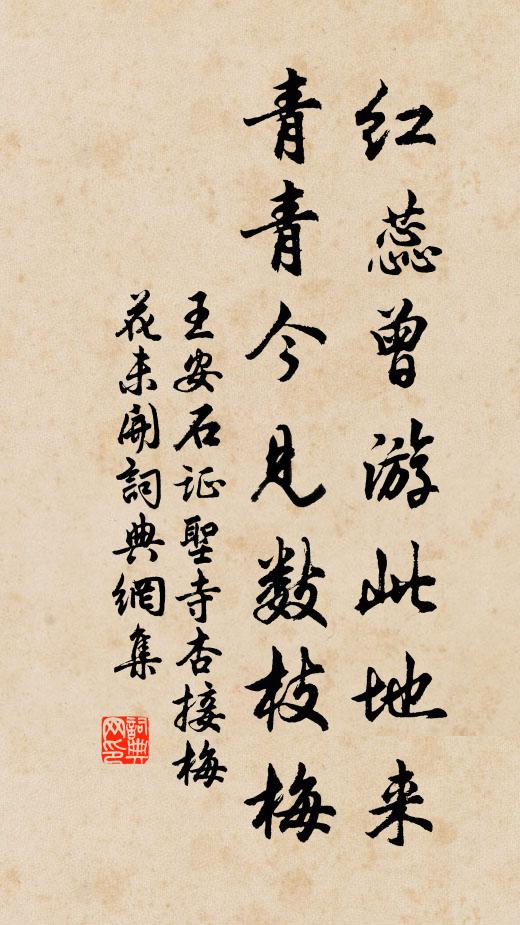 红蕊曾游此地来
青青今见数枝梅
王安石证聖寺杏接梅
花未開詞典網集
詞典網印